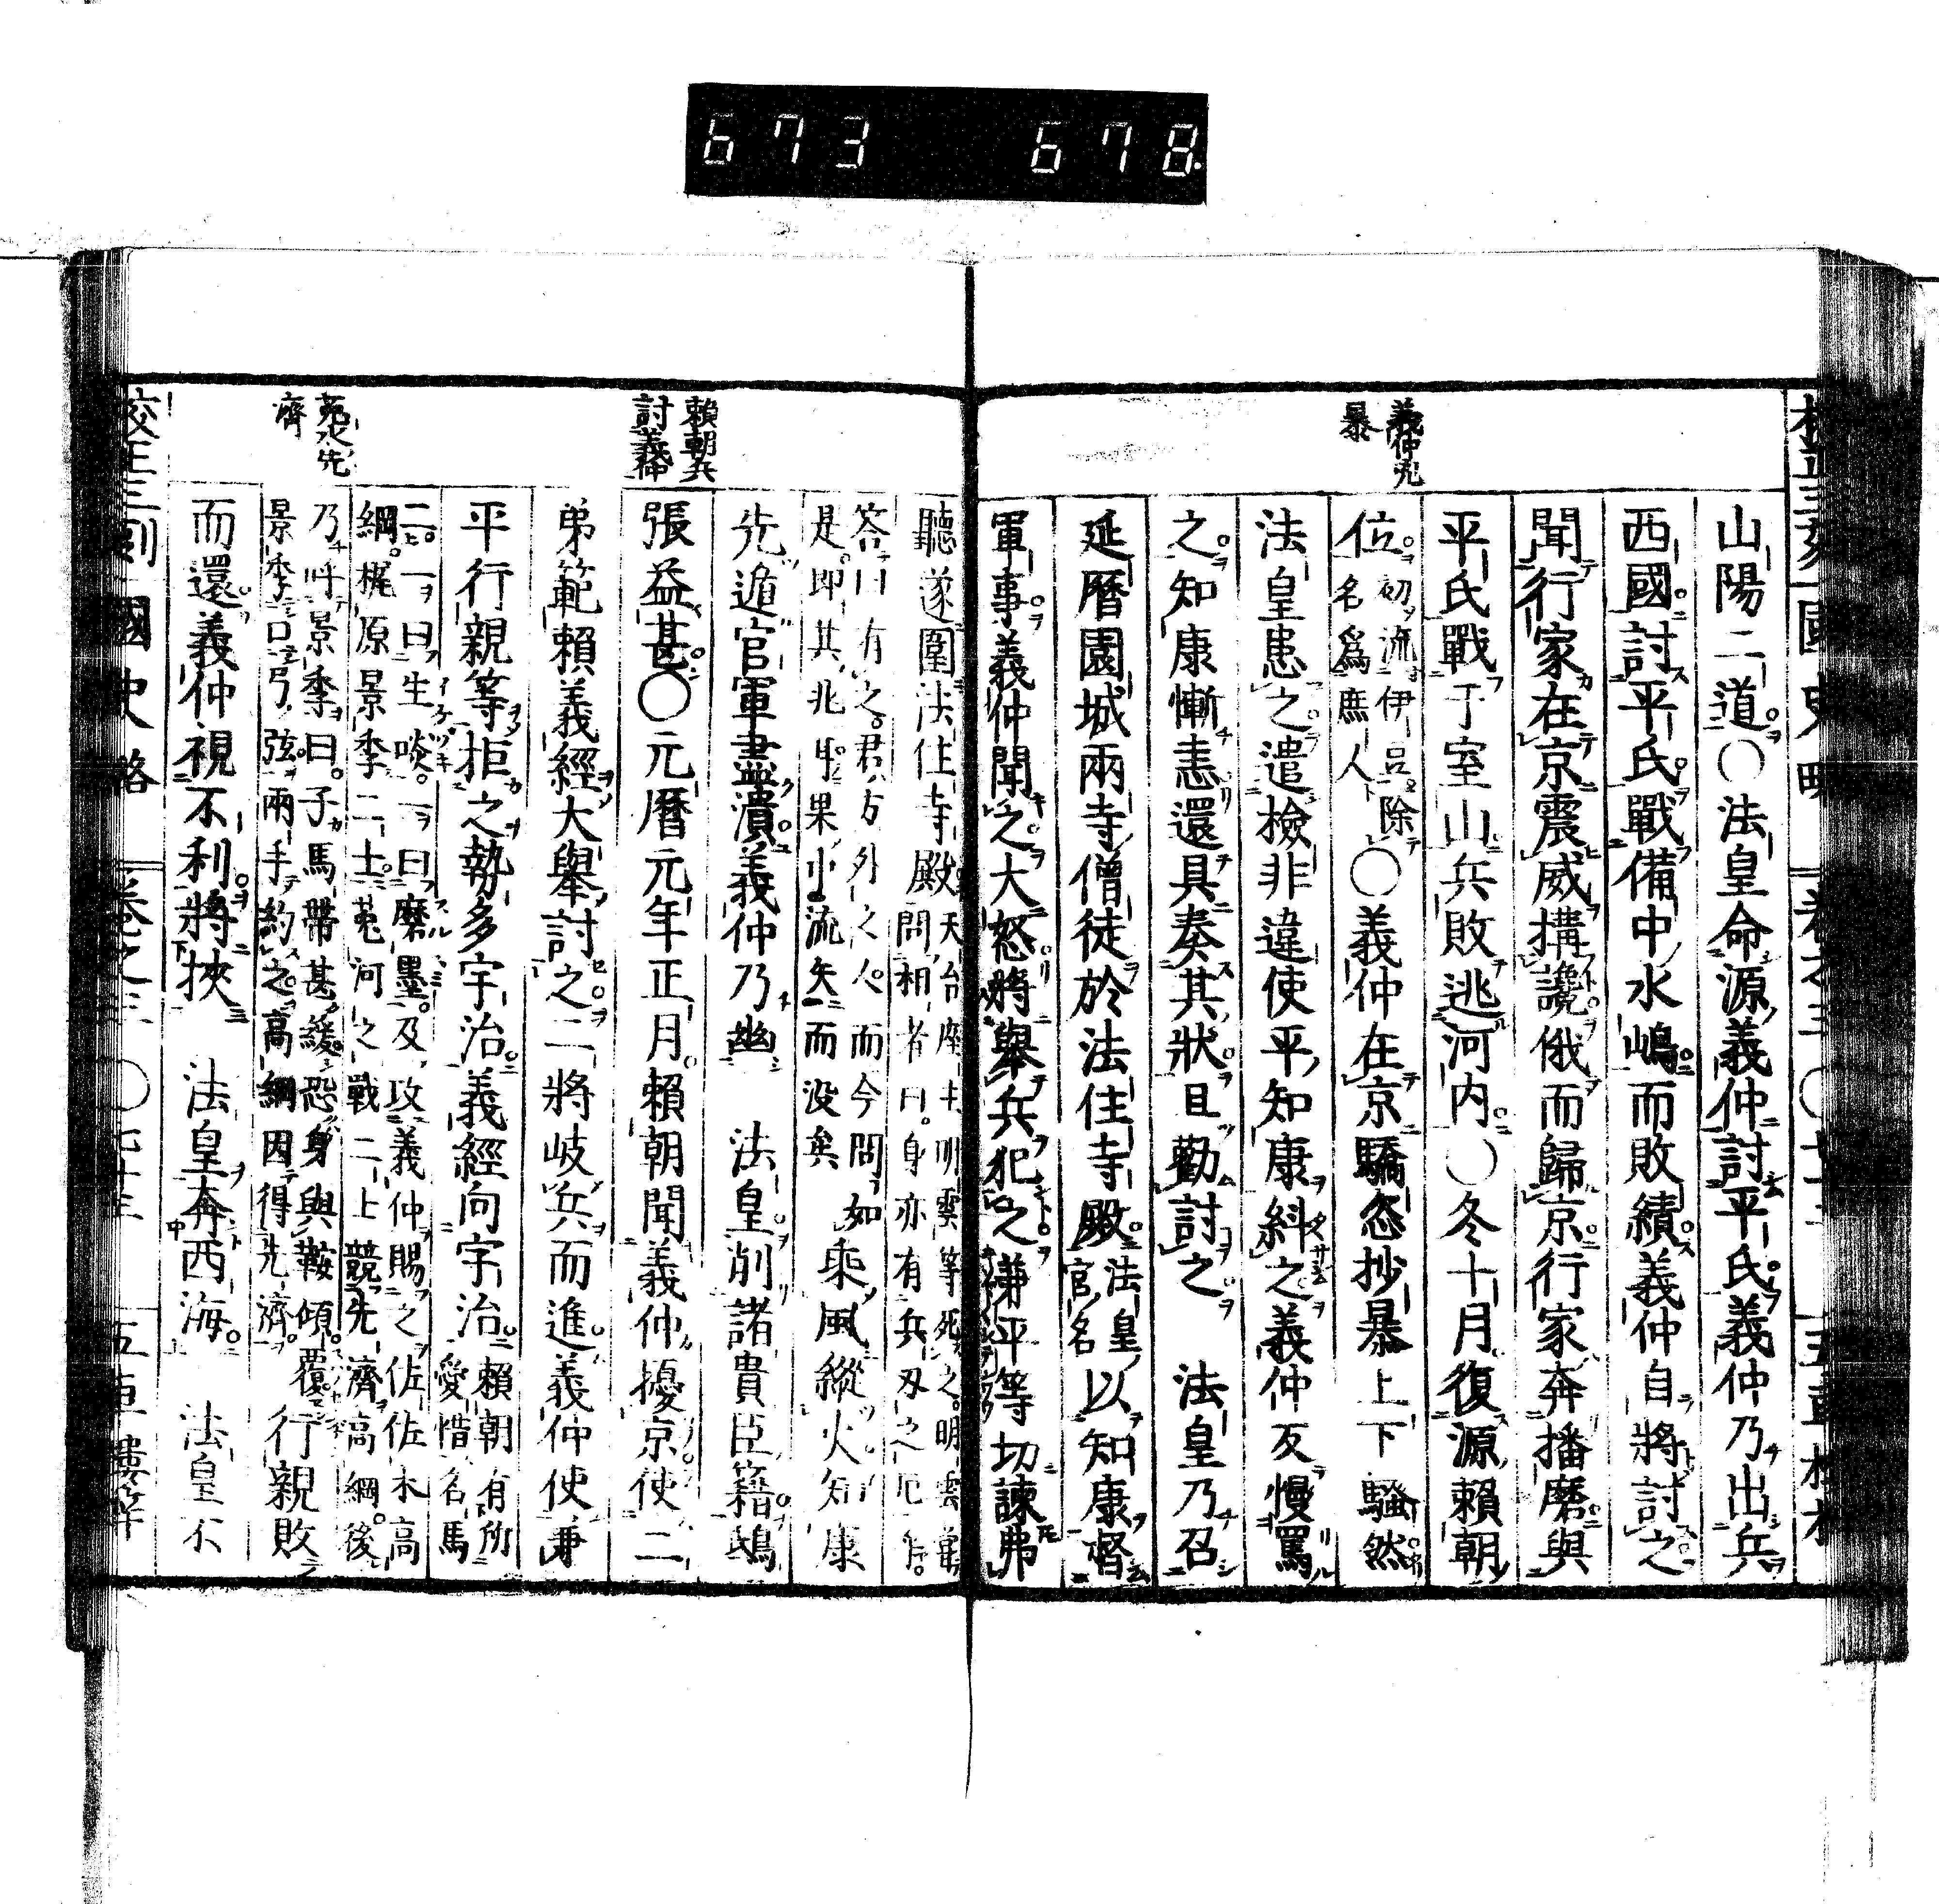 673 678
義仲兇
暴
山陽二道〇法皇命源義仲討平氏義仲乃出兵
西國討平氏戰備中水嶋而敗績義仲自將討之
聞行家在京震威搆讒俄而歸京行家奔播磨與
平氏戰于室山兵敗逃河内〇冬十月復源賴朝
位初流伊豆除
名爲庶人〇義仲在京驕恣抄暴上下騷然
法皇患之遣檢非違使平知康糾之義仲反慢罵
之知康慚恚還具奏其狀且勸討之　法皇乃召
延曆園城兩寺僧徒於法住寺殿法皇
官名以知康督
軍事義仲聞之大怒將舉兵犯之兼平等切諫弗
賴朝兵
討義仲
菟先
濟
聽遂圍法住寺殿天台座主明雲等死之明雲嘗
問相者曰身亦有兵刃之厄乍
答曰有之君方外之人而今問如
是即其兆也果中流矢而没矣乘風縱火知康
先遁官軍盡潰義仲乃幽　法皇削諸貴臣籍鴟
張益甚〇元曆元年正月賴朝聞義仲擾京使二
弟範賴義經大舉討之二將岐兵而進義仲使兼
平行親等拒之勢多宇治義經向宇治賴朝有所
愛惜名馬
二一曰生唼一曰磨墨及攻義仲賜之佐佐木高
綱梶原景季二士菟河之戰二上競先濟高綱後
乃呼景季曰子馬帶甚緩恐身與鞍傾覆
景季口弓弦兩手約之高綱因得先濟行親敗
而還義仲視不利將挾　法皇奔西海　法皇不
校正三刻國史略　卷之三　〇　五車樓梓